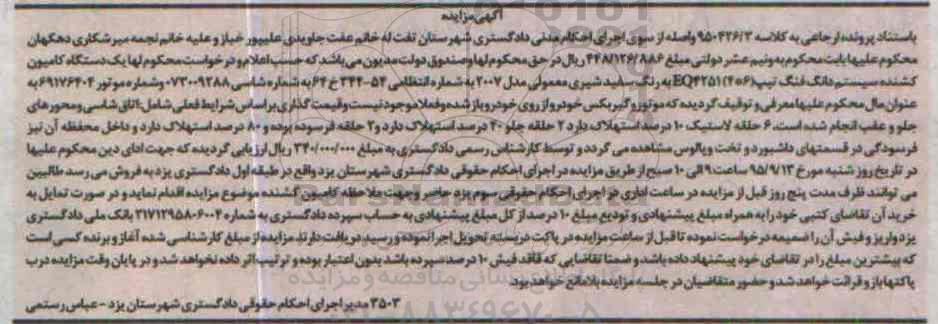 آگهی مزایده
باستناد پرونده ارجاعی به کلاسه 950426/3 واصله از سوی اجرای احکام مدنی دادگستری شهرستان تفت له خانم عفت جاویدی علیپور خباز و علیه خانم نجمه میرشکاری دهکهان
محکوم علیها بابت محکوم به و نیم عشر دولتی مبلغ 448/126/886 ریال در حق محکوم لها و صندوق دولت مدیون می باشد که حسب اعلام و درخواست محکوم لها یک دستگاه کامیون
کشنده سیستم دانگ فنگ تیپ EQ4251(6*4) به رنگ سفید شیری معمولی مدل 2007 به شماره انتظامی 54-344 خ 64 به شماره شاسی 073009288 و شماره موتور 69176404 به
عنوان مال محکوم علیها معرفی و توقیف گردیده که موتور و گیربکس خودرو از روی خودرو باز شده و فعلا موجود نیست و قیمت گذاری بر اساس شرایط فعلی شامل: اتاق شاسی و محورهای
جلو و عقب انجام شده است. 6 حلقه لاستیک 10 درصد استهلاک دارد 2 حلقه جلو 40 درصد استهلاک دارد و 2 حلقه فرسوده بوده و 80 درصد استهلاک دارد و داخل محفظه آن نیز
فرسودگی در قسمتهای داشبورد و تخت و پالوس مشاهده می گردد و توسط کارشناس رسمی دادگستری به مبلغ 340/000/000 ریال ارزیابی گردیده که جهت ادای دین محکوم علیها
در تاریخ روز شنبه مورخ 95/9/13 ساعت 9 الی 10 صبح از طریق مزایده در اجرای احکام حقوقی دادگستری شهرستان یزد واقع در طبقه اول دادگستری یزد به فروش می رسد طالبین
می توانند ظرف مدت پنج روز قبل از مزایده در ساعت اداری در اجرای احکام حقوقی سوم یزد حاضر و نسبت ملاحظه کامیون کشنده موضوع مزایده اقدام نماید و در صورت تمایل به
خرید آن تقاضای کتبی خود را به همراه مبلغ پیشنهادی و تودیع مبلغ 10 درصد از کل مبلغ پیشنهادی به حساب سپرده دادگستری به شماره 2171295806004 بانک ملی دادگستری
یزد واریز و فیش آن را ضمیمه درخواست نموده تا قبل از ساعت مزایده در پاکت در بسته تحویل اجرا نموده و رسید دریافت دارند مزایده از مبلغ کارشناسی شده آغاز و برنده کسی است
که بیشترین مبلغ را در تقاضای خود پیشنهاد داده باشد و ضمنا تقاضایی که فاقد فیش 10 درصد سپرده باشد بدون اعتبار بوده و ترتیب اثر داده نخواهد شد و در پایان وقت مزایده درب
پاکتها باز و قرائت خواهد شد و حضور متقاضیان در جلسه مزایده بلامانع خواهد بود.
3503 مدیر اجرای احکام حقوقی دادگستری شهرستان یزد - عباس رستمی